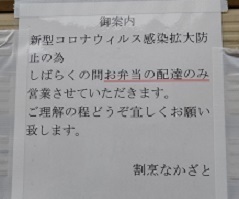 御案内
新型コロナウィルス感染拡大防
止の為
しばらくの間お弁当の配達のみ
営業させていただきます。
ご理解の程どうぞ宜しくお願い
致します。
割烹なかざと